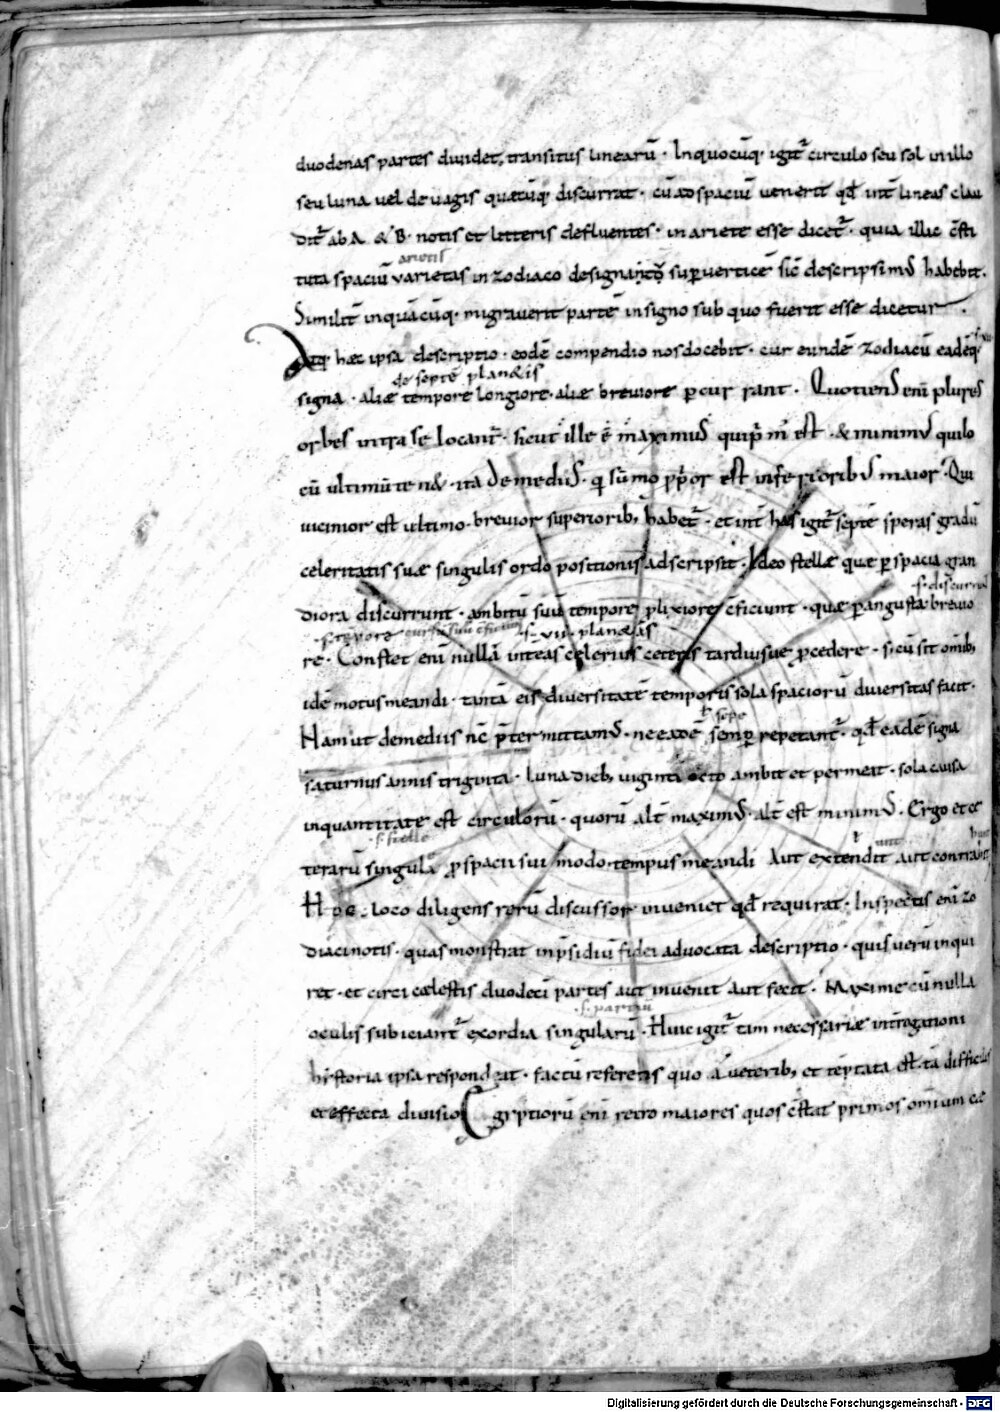 duodenas partes diuidet, transitus linearū · Inquocūq· igit̄ circulo seu sol in illo
seu luna uel de uagis quæcūq· discurrat · cū ad spaciū uenerit qđ int̄ lineas clau
dit̄ ab A · & B · notis et litteris defluentes · in ariete esse dicet̄ · quia illic c̄sti
arietis
tuta spaciū varietas in zodiaco designandū sup uerticē sic̄ descripsim' habebit ·
Similit̄ inquācūq· migrauerit partē insigno sub quo fuerit esse dicetur ·
Atq· hæc ipsa descriptio · eodē compendio nos docebit · cur eundē zodiacū eadēq·
de septē plan&is
signa · aliæ tempore longiore · aliæ breuiore ꝑcur rant · Quotiens eni plures
orbes intra se locant̄ · sicut ille ē maximus qui pri m' est · & minim' qui lo
cū ultimū ten& · ita de mediis · q sūmo ꝓpior est inferioribus maior · Qui
uicinior est ultimo · breuior superiorib, habet̄ · et int̄ has igit̄ septē speras gradū
celeritatis suæ singulis ordo positionis adscripsit · Ideo stellæ quæ ꝑ spacia gran
·s· discurrunt
diora discurrunt · ambitū suū tempore ꝓlixiore c̄ficiunt · quæ ꝑ angusta breuio
·s· tēpore cursū suū c̄ficiunt ·s· vii · plan&as
re · Constet eni nullā inter eas celerius ceteris tardiusue ꝓcedere · s; cū sit omib,
idē motus meandi · tantā eis diuersitatē temporis sola spaciorū diuersitas facit ·
ł sepe
Nam ut de mediis nc̄ p̄termittam' · ne eadē semꝑ repetant̄ · qđ eadē signa
saturnus annis triginta · luna dieb, uiginti octo ambit et permeat · sola causa
inquantitate est circulorū · quorū alt̄ maxim' · alt̄ est minim' · Ergo et ce
·s· stelle
terarū singula ꝓ spacii sui modo · tempus meandi Aut extendit aut contrahit
Hoc loco diligens rerū discussor inueniet qđ requirat · Inspectis eni zo
diaci notis · quas monstrat in p̄sidiū fidei aduocata descriptio · quis uerū inqui
ret · et circi cælestis duodeci partes aut inuenit aut fecit · Maxime cū nulla
·s· partiū
oculis subiciant̄ exordia singularū · Huic igit̄ tam necessariæ int̄rogationi
hystoria ipsa respondeat · factū referens quo a ueterib, et tēptata est tā difficilis
et effecta diuisio Egyptiorū eni retro maiores quos c̄stat primos omnium cæ
Digitalisierung gefördert durch die Deutsche Forschungsgemeinschaft - DFG